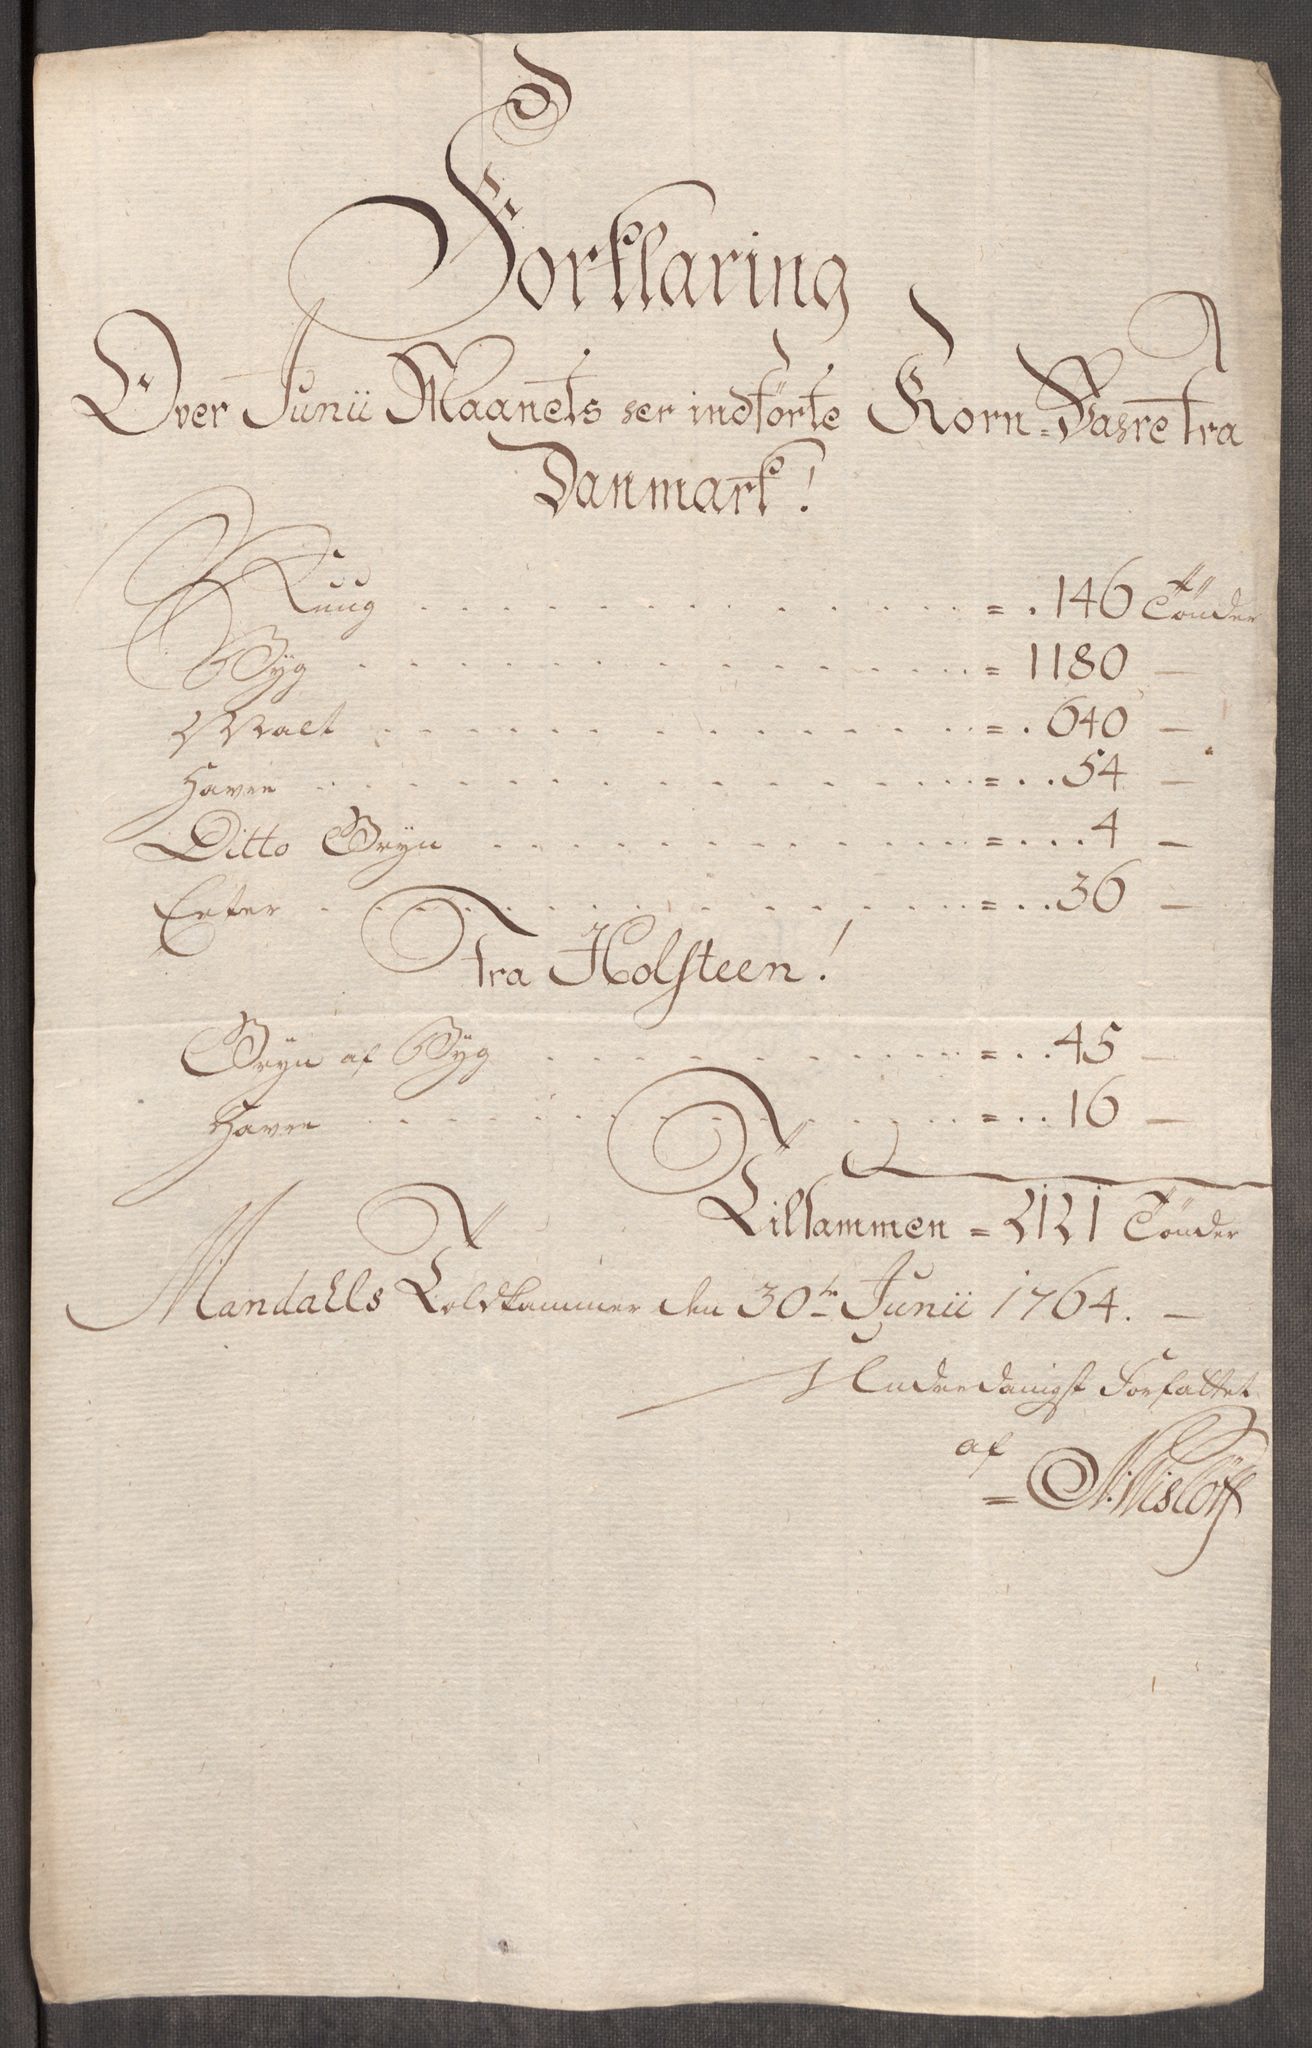 Forklaring
Over Junii Maanets her indførte Korn-Vahre fra
Danmark!
Ruug = . 146 Tønder
Byg = 1180 —
Malt = . 640 —
Havre = . . 54 —
Ditto Gryn = . . . 4 —
Erter = . . 36 —
Fra Holsteen!
Gryn af Byg = . . 45 —
Havre = . . 16 —
Tilsammen = 2121 Tønder
Mandahls Toldkammer den 30te Junii 1764. —
Underdanigst Forfattet
af
= N: Nisløff